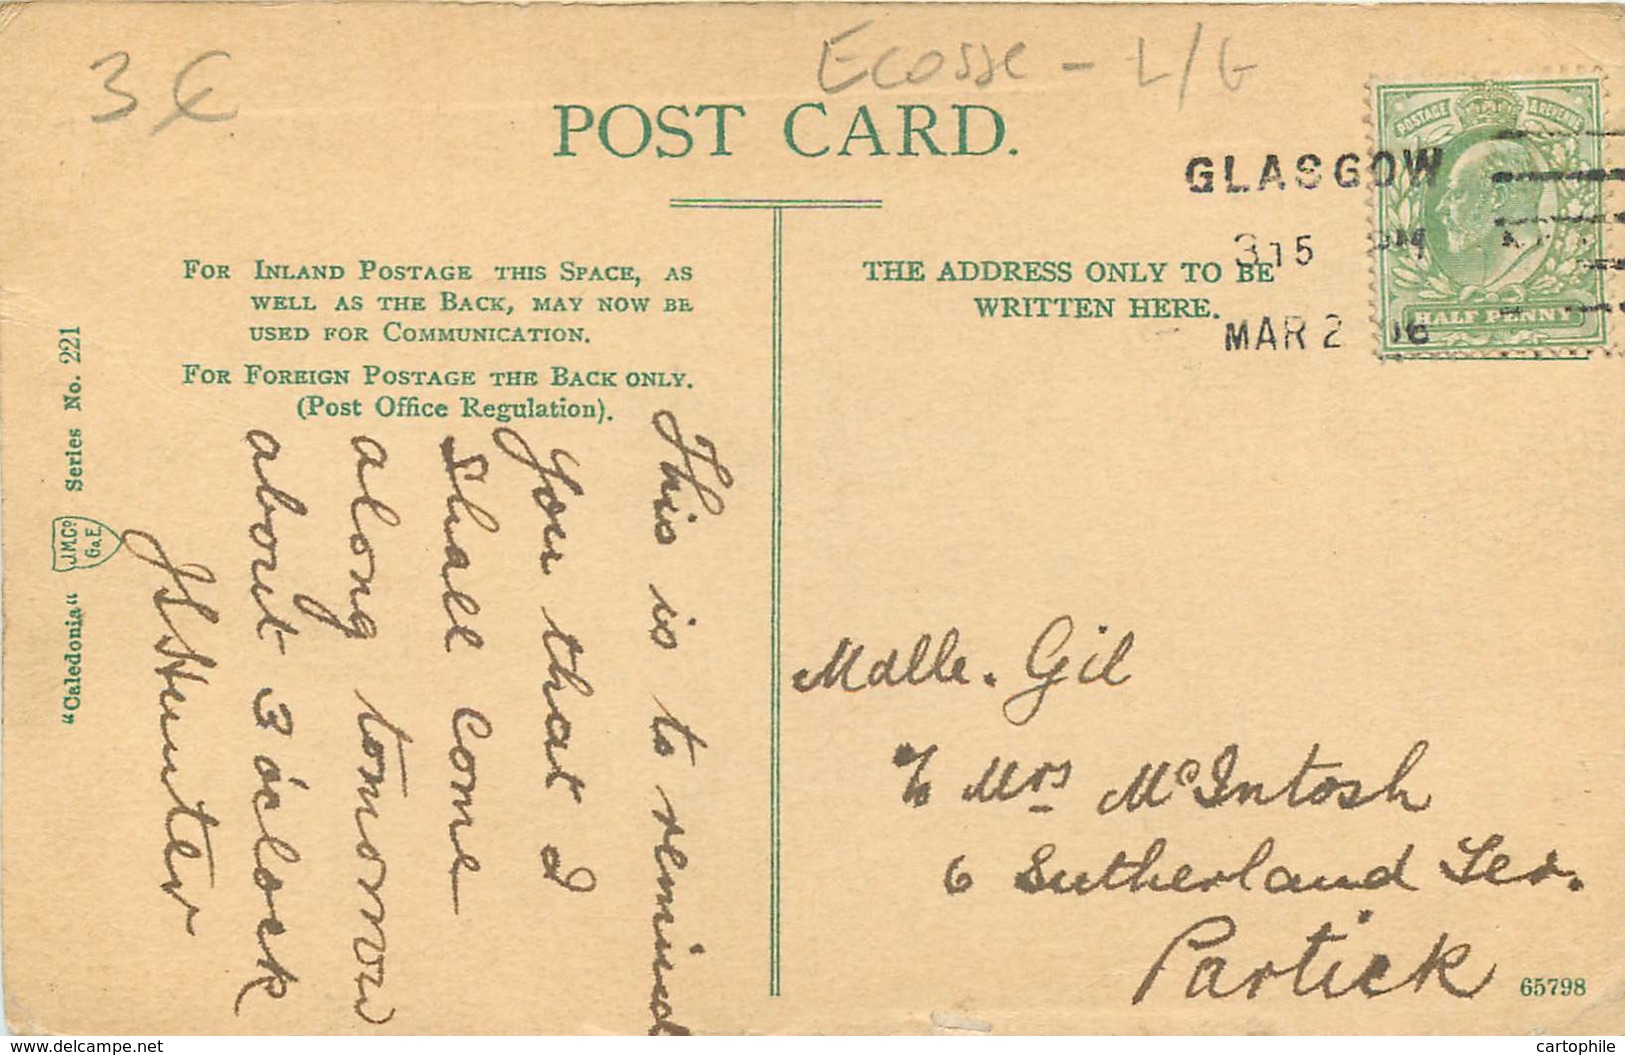 3 €
Ecosse - L/G
POST CARD.
POSTAGE & REVENUE
HALF PENNY
GLASGOW
3 15 PM
MAR 2 06
FOR INLAND POSTAGE THIS SPACE, AS
WELL AS THE BACK, MAY NOW BE
USED FOR COMMUNICATION.
FOR FOREIGN POSTAGE THE BACK ONLY.
(Post Office Regulation).
THE ADDRESS ONLY TO BE
WRITTEN HERE.
This is to remind
you that I
shall come
along tomorrow
about 3 o'clock
J S Hunter
Mdlle. Gil
℅ Mrs McIntosh
6 Sutherland Ter.
Partick
65798
"Caledonia" J.M.Co G&E. Series No. 221
www.delcampe.net
cartophile